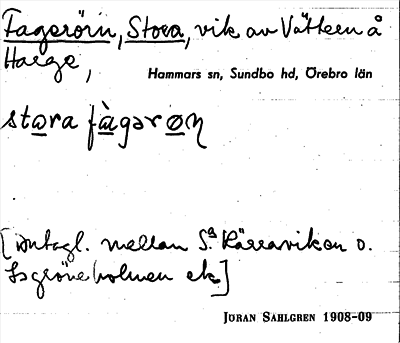 Fagerörin, Stora, vik av Vättern å
Harge,
Hammars sn, Sundbo hd, Örebro län
stora fàgərøn
mellan Sa Kärraviken o.
holmen ek]
JÖRAN SAHLGREN 1908-09